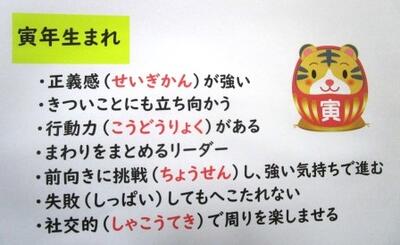 寅年生まれ
・正義感(せいぎかん)が強い
・きついことにも立ち向かう
・行動力(こうどうりょく)がある
・まわりをまとめるリーダー
・前向きに挑戦(ちょうせん)し、強い気持ちで進む
・失敗(しっぱい)してもへこたれない
・社交的(しゃこうてき)で周りを楽しませる
寅